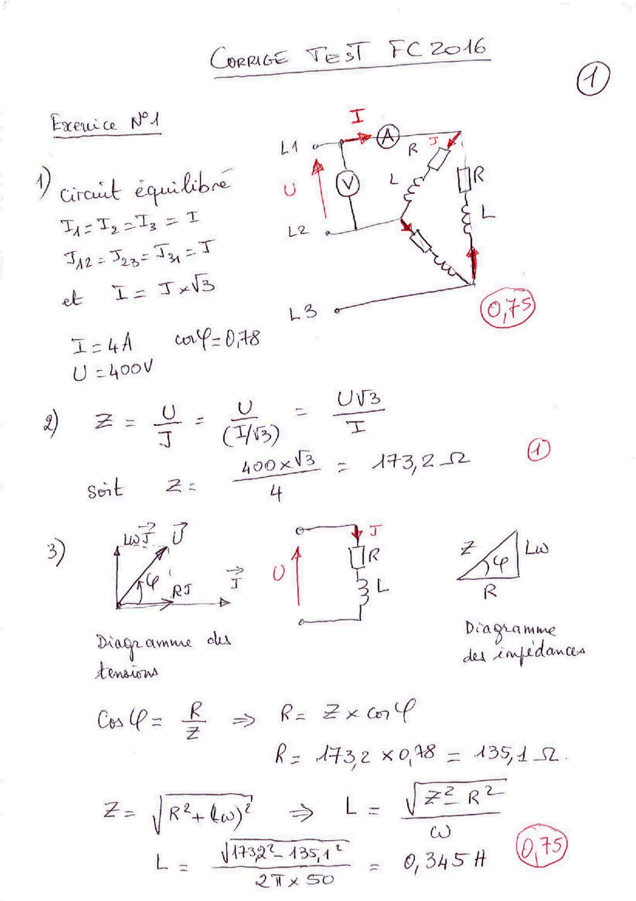 CORRIGE TEST FC 2016
1
Exercice N°1
1) circuit équilibré
I1 = I2 = I3 = I
J12 = J23 = J31 = J
et I = J×√3
I = 4A cosφ = 0,78
U = 400V
I
A
L1
J
R
L
R
L
U
V
L2
L3
0,75
2) Z = U/J = U/(I/√3) = U√3/I
1
soit Z = 400×√3/4 = 173,2 Ω
3)
LωJ U
φ
RJ J
Diagramme des
tensions
J
U
R
L
Z φ Lω
R
Diagramme
des impédances
Cos φ = R/Z ⇒ R = Z × cosφ
R = 173,2 × 0,78 = 135,1 Ω.
Z = √(R² + (Lω)²) ⇒ L = √(Z² - R²)/ω
L = √(173,2² - 135,1²)/(2π × 50) = 0,345 H
0,75